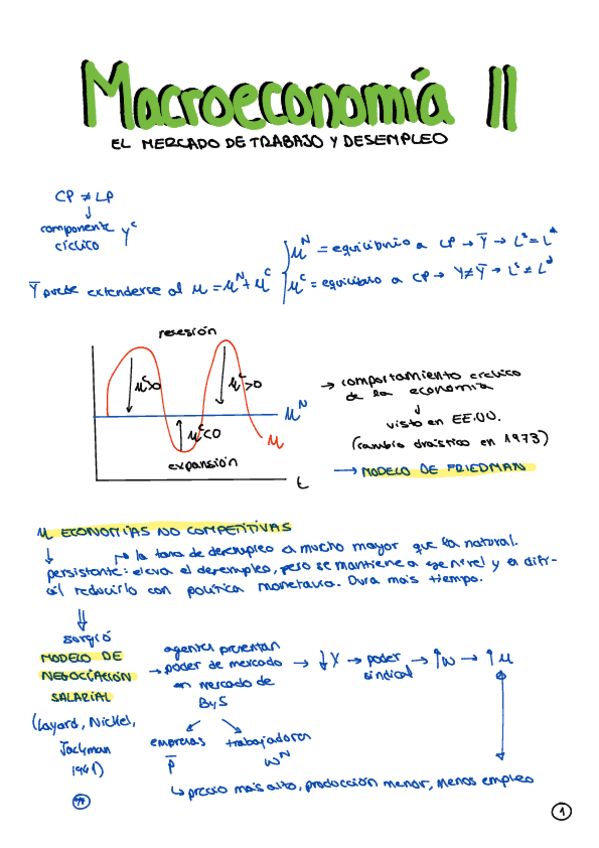 Macroeconomía II
EL MERCADO DE TRABAJO Y DESEMPLEO
CP ≠ LP
↓
componente Y^c
cíclico
μ^N = equilibrio a LP → Ȳ → L^s = L^d
Ȳ puede extenderse al μ = μ^N + μ^c
μ^c = equilibrio a CP → Y ≠ Ȳ → L^s ≠ L^d
recesión
μ^c>0
μ^c>0
μ^N
μ^c<0
μ
expansión
t
→ comportamiento cíclico
de la economía
↓
visto en EE.UU.
(cambio drástico en 1973)
→ MODELO DE FRIEDMAN
μ ECONOMÍAS NO COMPETITIVAS
↓ → la tasa de desempleo es mucho mayor que la natural.
persistente: eleva el desempleo, pero se mantiene a ese nivel y es difí-
cil reducirlo con política monetaria. Dura más tiempo.
⇓
surgió
MODELO DE
NEGOCIACIÓN
SALARIAL
(Layard, Nickel,
Jackman
1991)
agentes presentan
→ poder de mercado → ↓Y → poder → ↑W → ↑μ
sindical
en mercado de
ByS
empresas trabajadores
P̄ W^N
↳ precio más alto, producción menor, menos empleo
1